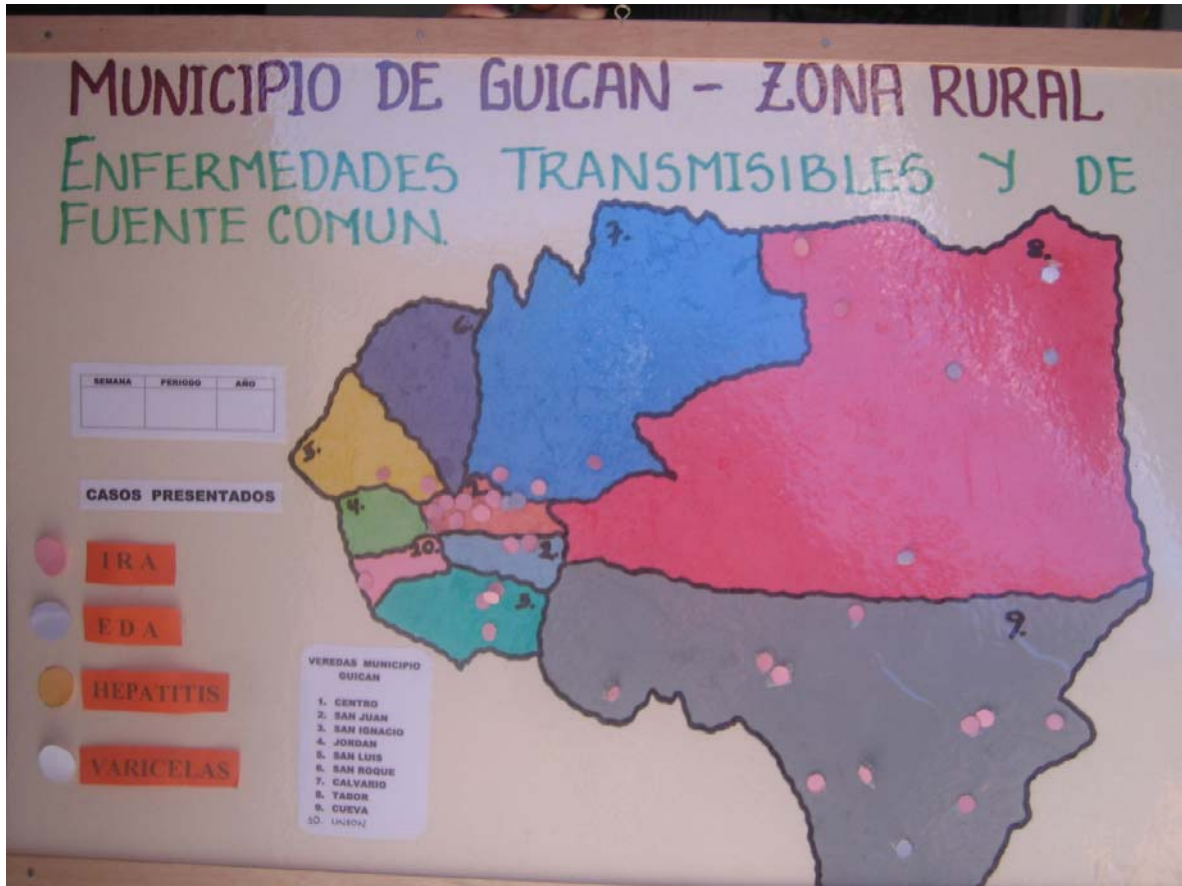 MUNICIPIO DE GUICAN - ZONA RURAL
ENFERMEDADES TRANSMISIBLES Y DE
FUENTE COMUN.
7.
8.
6.
SEMANA PERIODO AÑO
5.
1.
CASOS PRESENTADOS
4.
10.
2.
IRA
3.
9.
EDA
HEPATITIS
VARICELAS
VEREDAS MUNICIPIO
GUICAN
1. CENTRO
2. SAN JUAN
3. SAN IGNACIO
4. JORDAN
5. SAN LUIS
6. SAN ROQUE
7. CALVARIO
8. TABOR
9. CUEVA
10. UNION